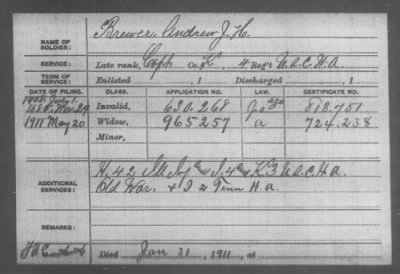 NAME OF SOLDIER: Brewer Andrew J. H.
SERVICE: Late rank, Corpl Co. K, 4 Reg't U.S.C.H.A.
TERM OF SERVICE: Enlisted , 1 Discharged , 1
DATE OF FILING. CLASS. APPLICATION NO. LAW. CERTIFICATE NO.
1908 July 1.
188 Mar 29 Invalid, 630.268 813.751
1911 May 20 Widow, 965257 a 724.238
Minor,
ADDITIONAL SERVICES: H. 42 Ill Inf I. 4 K 3 U.S.C.H.A.
Old War. & I 2 Tenn H.A.
REMARKS:
Died Jan 31, 1911, at